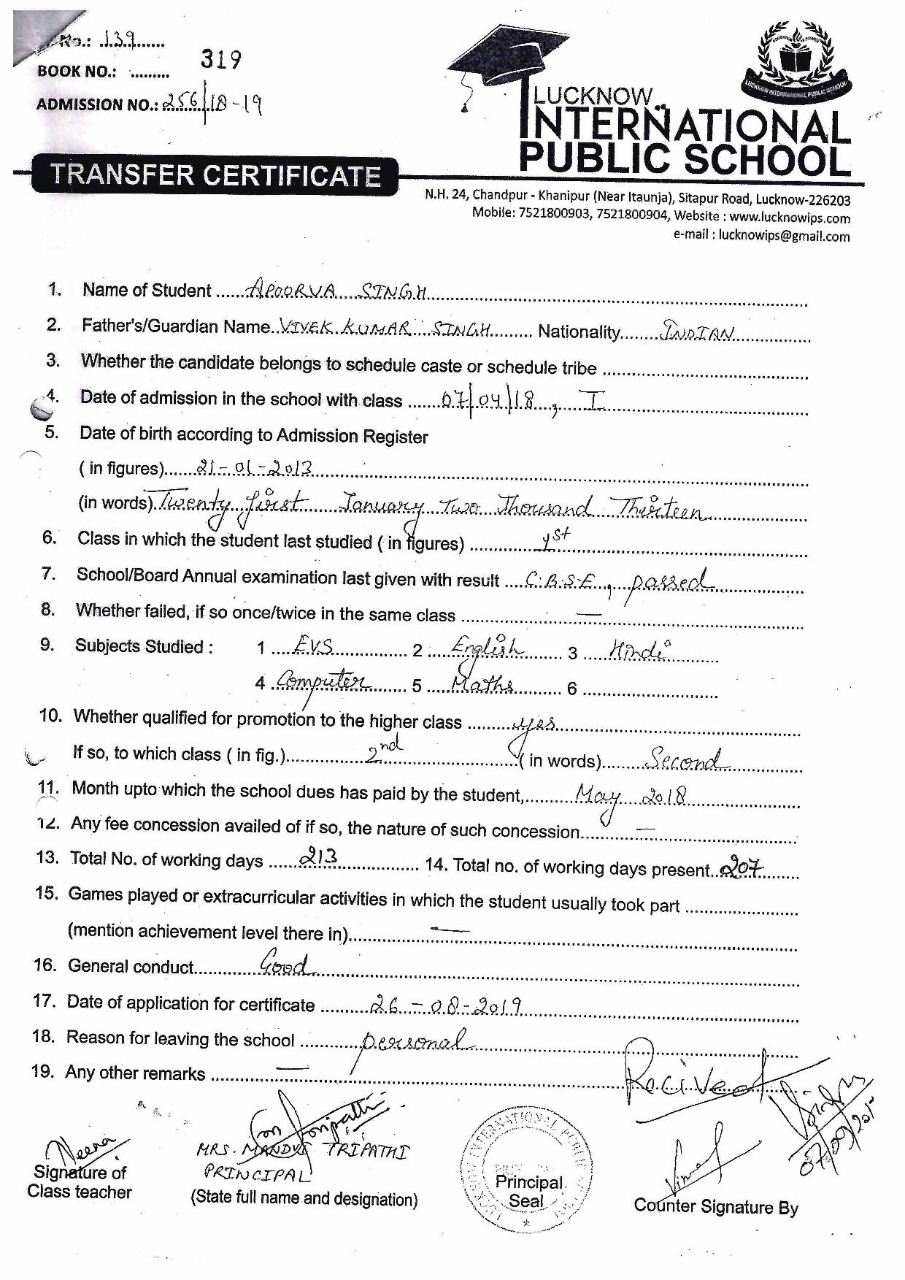 No.: 139
BOOK NO.: ......... 319
ADMISSION NO.: 256/18-19
LUCKNOW
INTERNATIONAL
PUBLIC SCHOOL
LUCKNOW INTERNATIONAL PUBLIC SCHOOL
TRANSFER CERTIFICATE
N.H. 24, Chandpur - Khanipur (Near Itaunja), Sitapur Road, Lucknow-226203
Mobile: 7521800903, 7521800904, Website : www.lucknowips.com
e-mail : lucknowips@gmail.com
1. Name of Student ......APOORVA SINGH......
2. Father's/Guardian Name..VIVEK KUMAR SINGH........ Nationality.......INDIAN......
3. Whether the candidate belongs to schedule caste or schedule tribe ......
4. Date of admission in the school with class ......07/04/18, I......
5. Date of birth according to Admission Register
( in figures)......21-01-2013......
(in words).Twenty first January Two Thousand Thirteen
6. Class in which the student last studied ( in figures) ............ 1st
7. School/Board Annual examination last given with result ....C.B.S.E, passed
8. Whether failed, if so once/twice in the same class ...... —
9. Subjects Studied : 1 ....EVS............ 2 ....English....... 3 ....Hindi.......
4 Computer....... 5 ....Maths....... 6 ......
10. Whether qualified for promotion to the higher class ........yes......
If so, to which class ( in fig.)......2nd......( in words)......Second......
11. Month upto which the school dues has paid by the student,........May 2018......
12. Any fee concession availed of if so, the nature of such concession......—......
13. Total No. of working days ......213............ 14. Total no. of working days present..207......
15. Games played or extracurricular activities in which the student usually took part ......
(mention achievement level there in)......—......
16. General conduct......Good......
17. Date of application for certificate ......26-08-2019......
18. Reason for leaving the school ......personal......
19. Any other remarks ......—......
Recived
07/09/201
Neera
MRS. MANDVI TRIPATHI
PRINCIPAL
Signature of
Class teacher
(State full name and designation)
LUCKNOW INTERNATIONAL PUBLIC
Principal
Seal
Counter Signature By